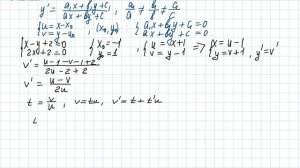 y' = (a₁x + b₁y + c₁)/(ax + by + c), a₁/a ≠ b₁/b
{ u = x - x₀, v = y - y₀, (x₀, y₀) { a₁x + b₁y + c₁ = 0, ax + by + c = 0
{ x - y + 2 = 0, 2x + 2 = 0 { x₀ = -1, y₀ = 1 { u = x + 1, v = y - 1 => { x = u - 1, y = v + 1, y' = v'
v' = (u - 1 - v - 1 + 2)/(2u - 2 + 2)
v' = (u - v)/(2u)
t = v/u, v = tu, v' = t + t'u